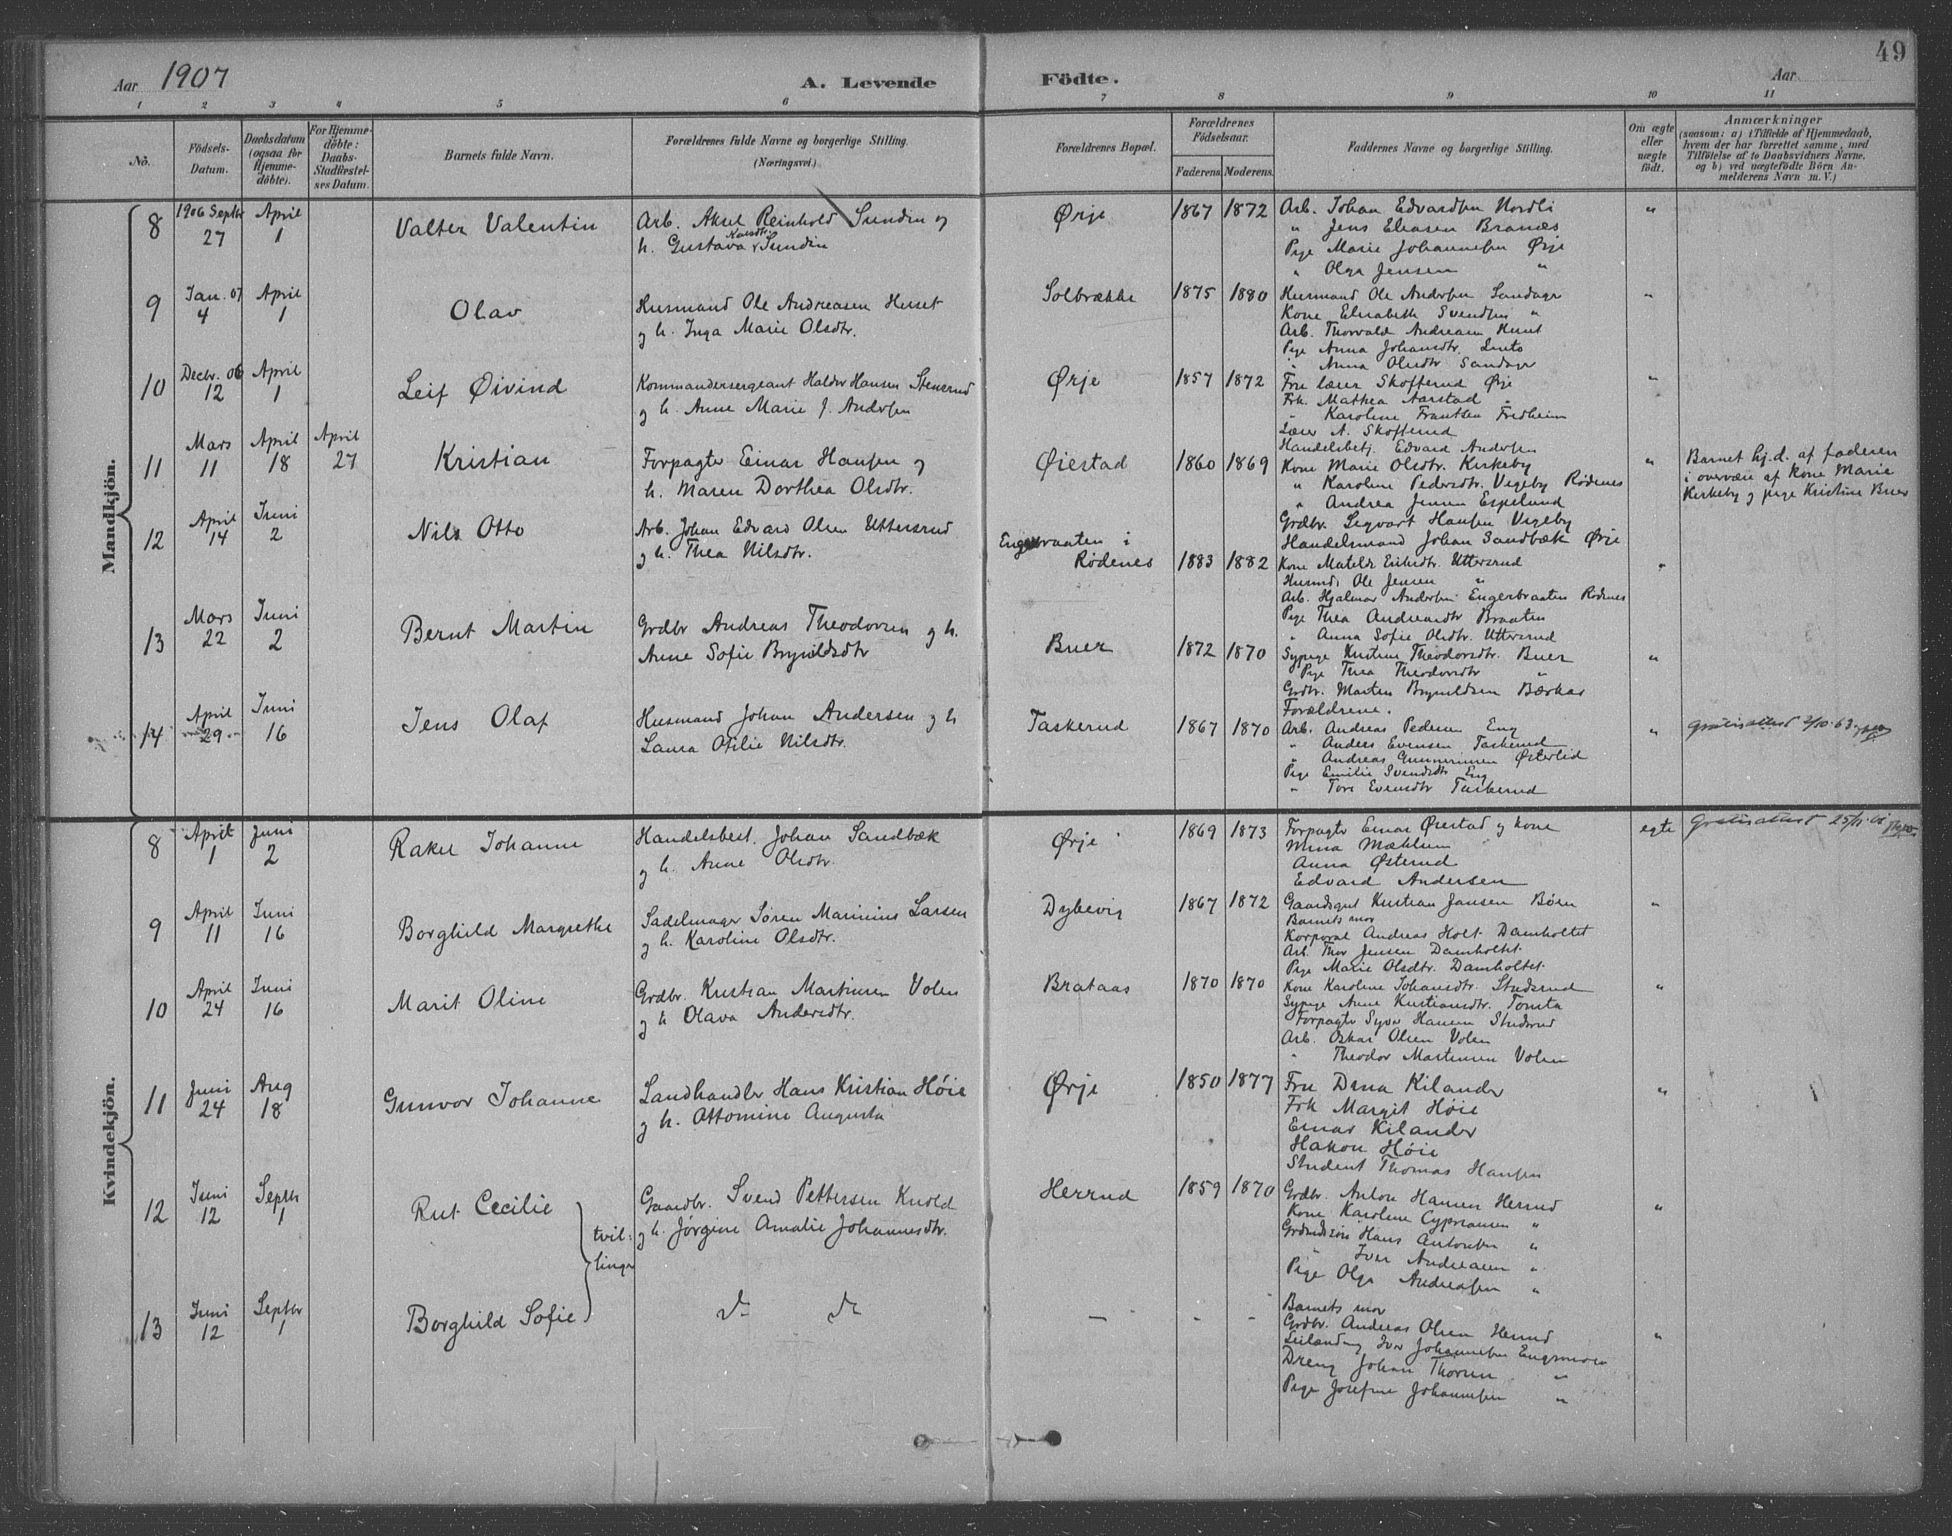 49
Aar 1907
A. Levende Födte.
Aar
1 2 3 4 5 6 7 8 9 10 11
No.
Födsels-Datum.
Daabsdatum (ogsaa for Hjemme-döbte).
For Hjemme-döbte: Daabs-Stadfæstel-ses Datum.
Barnets fulde Navn.
Forældrenes fulde Navne og borgerlige Stilling.
(Næringsvei.)
Forældrenes Bopæl.
Forældrenes Födselsaar.
Faderens. Moderens.
Faddernes Navne og borgerlige Stilling.
Om ægte eller uægte födt.
Anmærkninger
(saasom: a) i Tilfælde af Hjemmedaab,
hvem der har forrettet samme, med
Tilföielse af to Daabsvidners Navne,
og b) ved uægtefödte Börn An-
melderens Navn m. V.)
Mandkjön.
8
1906 Septbr 27
April 1
Valter Valentin
Arb. Aksel Reinhold Sundin og
h. Gustava Karlsdtr. Sundin
Ørje
1867 1872
Arb. Johan Edvardsen Nordli
" Jens Eliasen Branæs
Pige Marie Johannesen Ørje
" Olga Jensen "
"
9
Jan. 07 4
April 1
Olav
Husmand Ole Andreasen Huset
og h. Inga Marie Olsdtr.
Solbrække
1875 1880
Husmand Ole Andersen Sandager
Kone Elisabeth Svendsen "
Arb. Thorvald Andreasen Huset
Pige Anna Johansdtr.
" Anna Olsdtr Sandager
"
10
Decbr. 06 12
April 1
Leif Øivind
Kommandersergeant Haldor Hansen Stensrud
og h. Anne Marie J. Andersen
Ørje
1857 1872
Fru lærer Skofterud Ørje
Frk. Mathea Aarstad "
" Karoline Frantsen Fredheim
Lærer A. Skofterud
Handelsbetj. Edvard Andersen
"
11
Mars 11
April 18
April 27
Kristian
Forpagter Einar Hansen og
h. Maren Dorthea Olsdtr.
Øiestad
1860 1869
Kone Marie Olsdtr. Kirkeby
" Karoline Pedersdtr. Vigeby Rødenes
" Andrea Jensen Espelund
Grdbr. Sigvart Hansen Vigeby
Handelsmand Johan Sandbæk Ørje
"
Barnet hj.d. af faderen
i overvære af kone Marie
Kirkeby og pige Kristine Buer
12
April 14
Juni 2
Nils Otto
Arb. Johan Edvard Olsen Uttersrud
og h. Thea Nilsdtr.
Engerbraaten i
Rødenes
1883 1882
Kone Matilde Eriksdtr. Uttersrud
Husmd. Ole Jensen "
Arb. Hjalmar Andersen Engerbraaten Rødenes
Pige Thea Andreasdtr Braaten
" Anna Sofie Olsdtr. Uttersrud
"
13
Mars 22
Juni 2
Bernt Martin
Grdbr Andreas Theodorsen og h.
Anne Sofie Brynildsdtr
Buer
1872 1870
Sypige Kristine Theodorsdtr. Buer
Pige Thea Theodorsdtr "
Grdbr. Martin Brynildsen Bærkas
Forældrene.
"
14
April 29
Juni 16
Jens Olaf
Husmand Johan Andersen og h
Laura Otilie Nilsdtr.
Taskerud
1867 1870
Arb. Andreas Pedersen Eng
" Anders Evensen Taskerud
" Andreas Gunnersen Østerlid
Pige Emilie Svendsdtr Eng
" Tore Evensdtr Taskerud
"
Gratisattest 2/10-63
Kvindekjön.
8
April 1
Juni 2
Rakel Johanne
Handelsbest. Johan Sandbæk
og h. Anne Olsdtr.
Ørje
1869 1873
Forpagter Einar Øiestad og kone
Mina Mæhlum
Anna Østerud
Edvard Andersen
egte
Gratisattest
9
April 11
Juni 16
Borghild Margrethe
Sadelmager Søren Marinius Larsen
og h. Karoline Olsdtr.
Dybevig
1867 1872
Gaardsgut Kristian Jansen Børn
Barnets mor
Korporal Andreas Holt Damholtet
Arb. Thor Jensen Damholtet
Pige Marie Olsdtr. Damholtet.
"
10
April 24
Juni 16
Marit Oline
Grdbr. Kristian Martinsen Volen
og h Olava Andersdtr.
Brataas
1870 1870
Kone Karoline Johansdtr. Studsrud
Sypige Anne Kristiansdtr. Tomta
Forpagter Syver Hansen Studsrud
Arb. Oskar Olsen Volen
" Theodor Martinsen Volen
"
11
Juni 24
Aug 18
Gunvor Johanne
Landhandler Hans Kristian Høie
og h. Ottomine Augusta
Ørje
1850 1877
Fru Dina Kilander
Frk Margit Høie
Einar Kilander
Hakon Høie
Student Thomas Hansen
"
12
Juni 12
Septbr 1
Rut Cecilie
tvil-
linger
Gaardbr. Svend Pettersen Knold
og h. Jørgine Amalie Johannesdtr.
Herrud
1859 1870
Grdbr. Anton Hansen Herrud
Kone Karoline Cypriansen "
Grdmdssøn Hans Antonsen "
" Iver Andreasen "
Pige Olga Andreasen "
"
13
Juni 12
Septbr 1
Borghild Sofie
do do
- - -
Barnets mor
Grdbr. Andreas Olsen Herrud
Leilænding Iver Johannesen Engsmosen
Dreng Johan Thoresen "
Pige Josefine Johannesen "
"